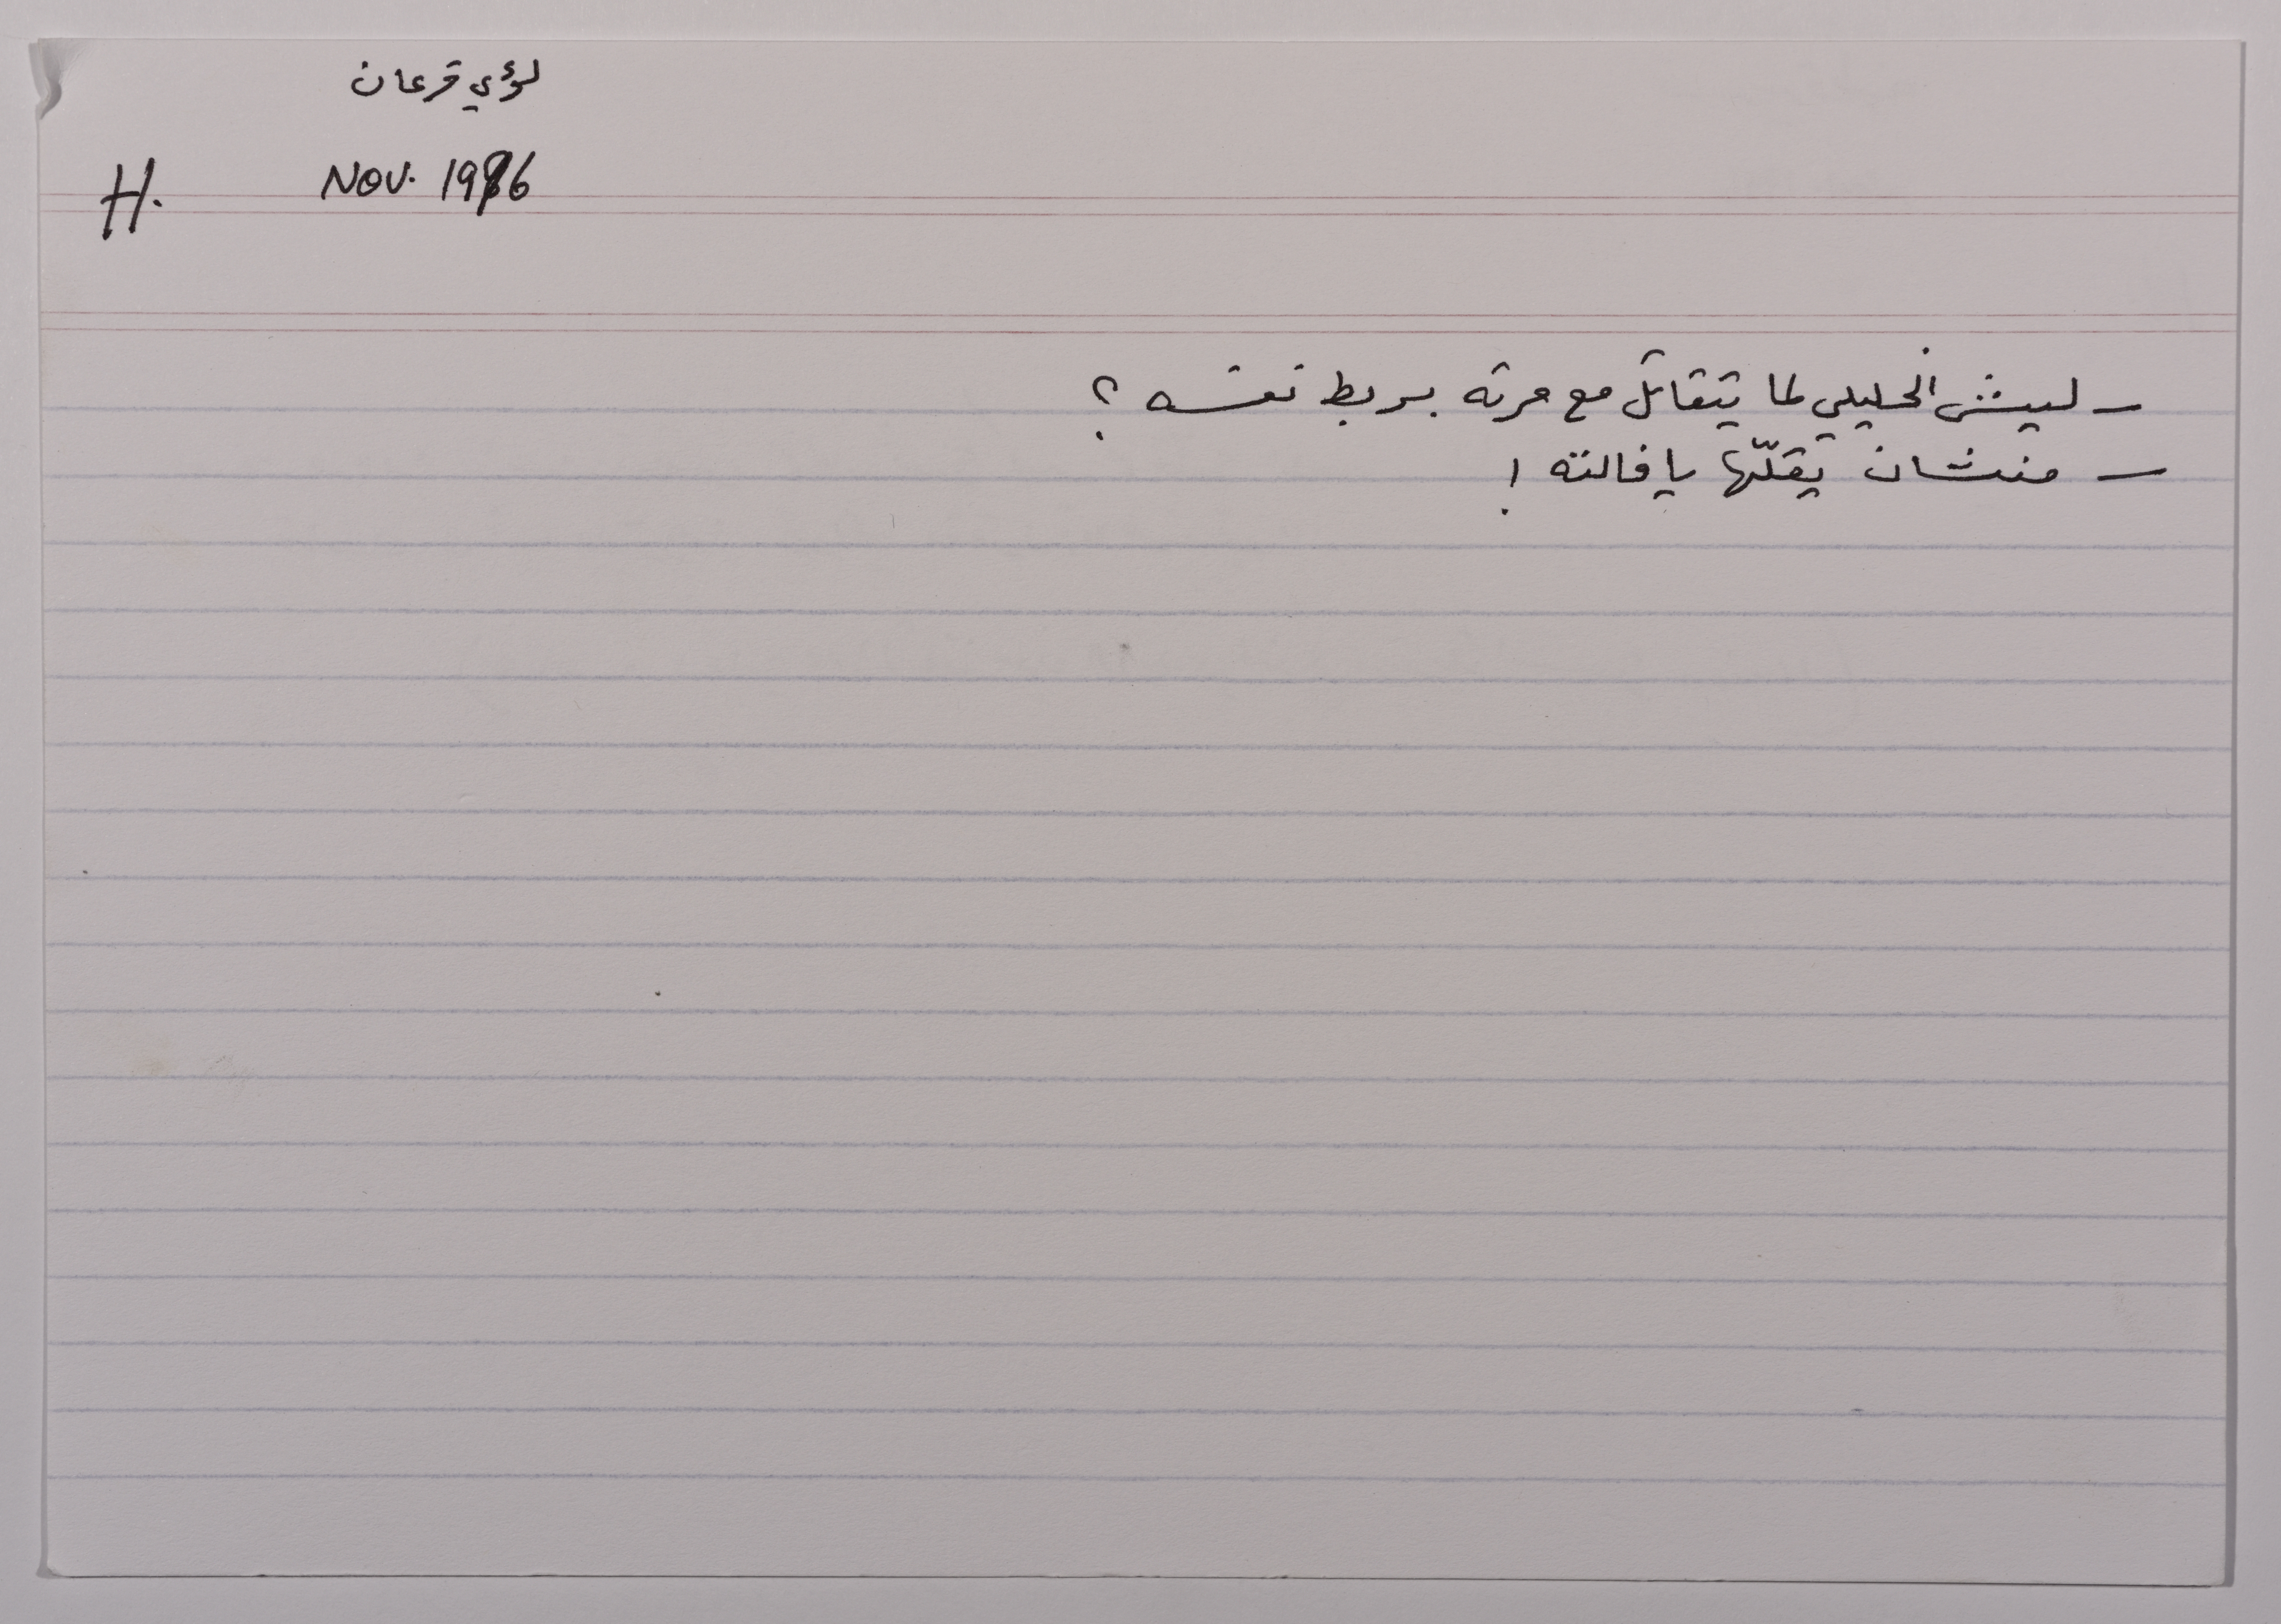 لؤي قرعان
H. NOV. 1986
- ليش الخليلي لما يتقاتل مع مرته بربط نفسه ؟
- منشان يقلّها يا فالته !